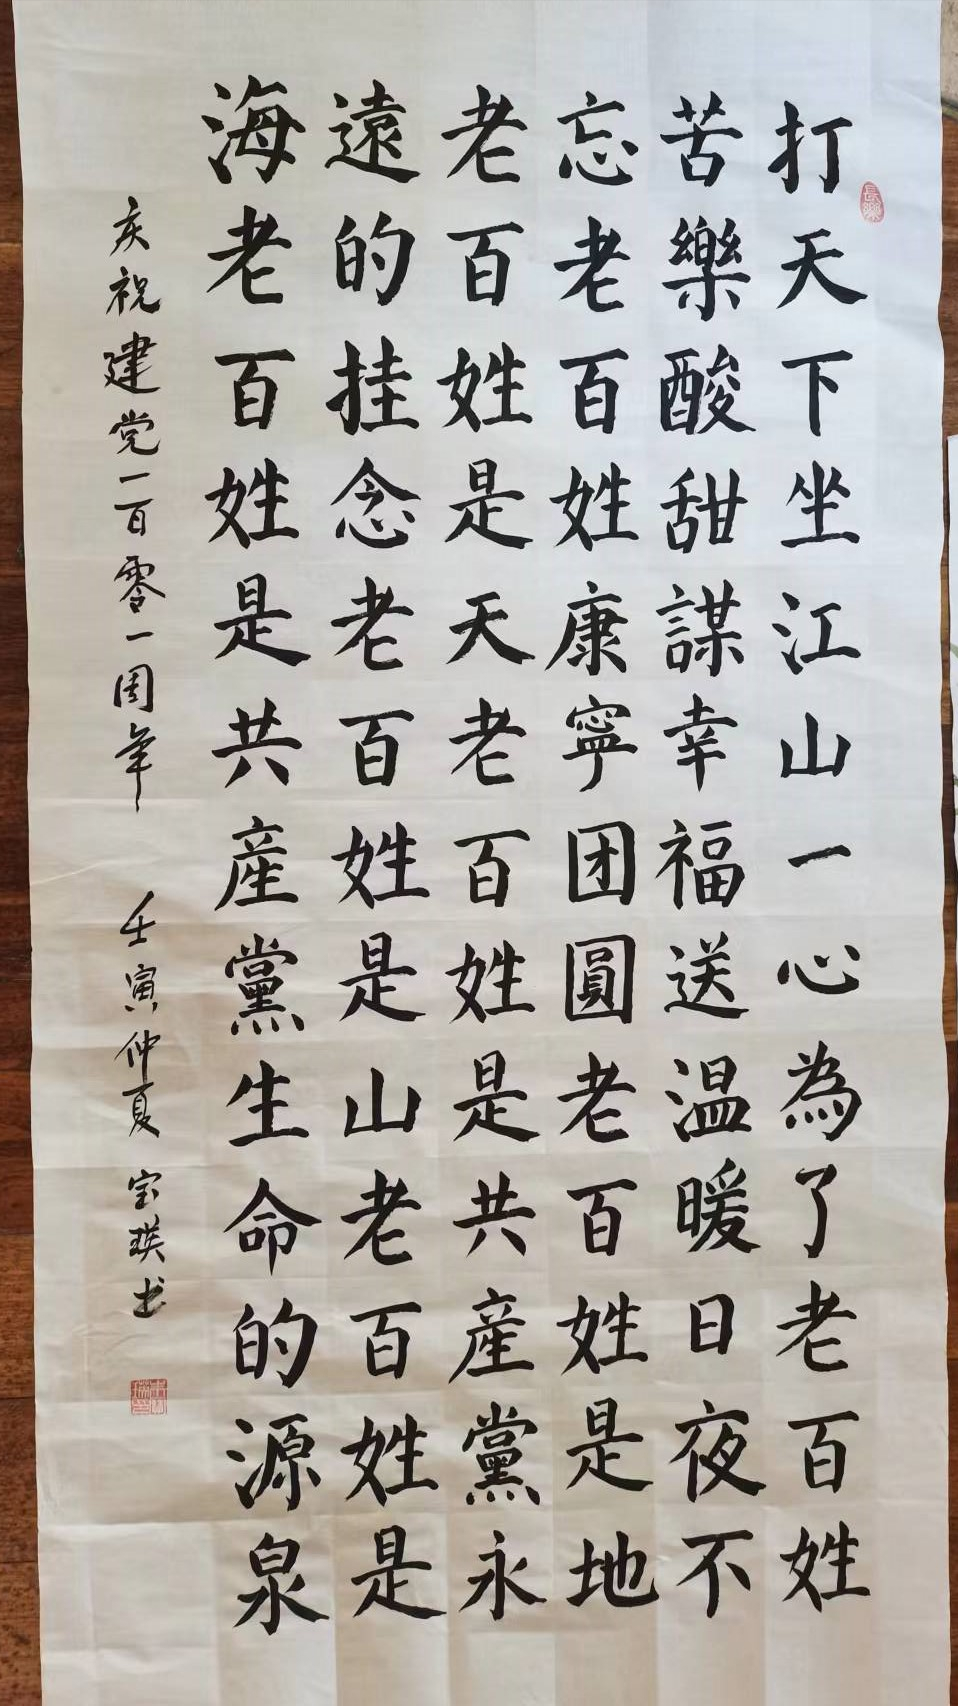 打天下坐江山一心為了老百姓
苦樂酸甜謀幸福送温暖日夜不
忘老百姓康寧团圓老百姓是地
老百姓是天老百姓是共產黨永
遠的挂念老百姓是山老百姓是
海老百姓是共產黨生命的源泉
庆祝建党一百零一周年 壬寅仲夏 宝瑛书
長樂